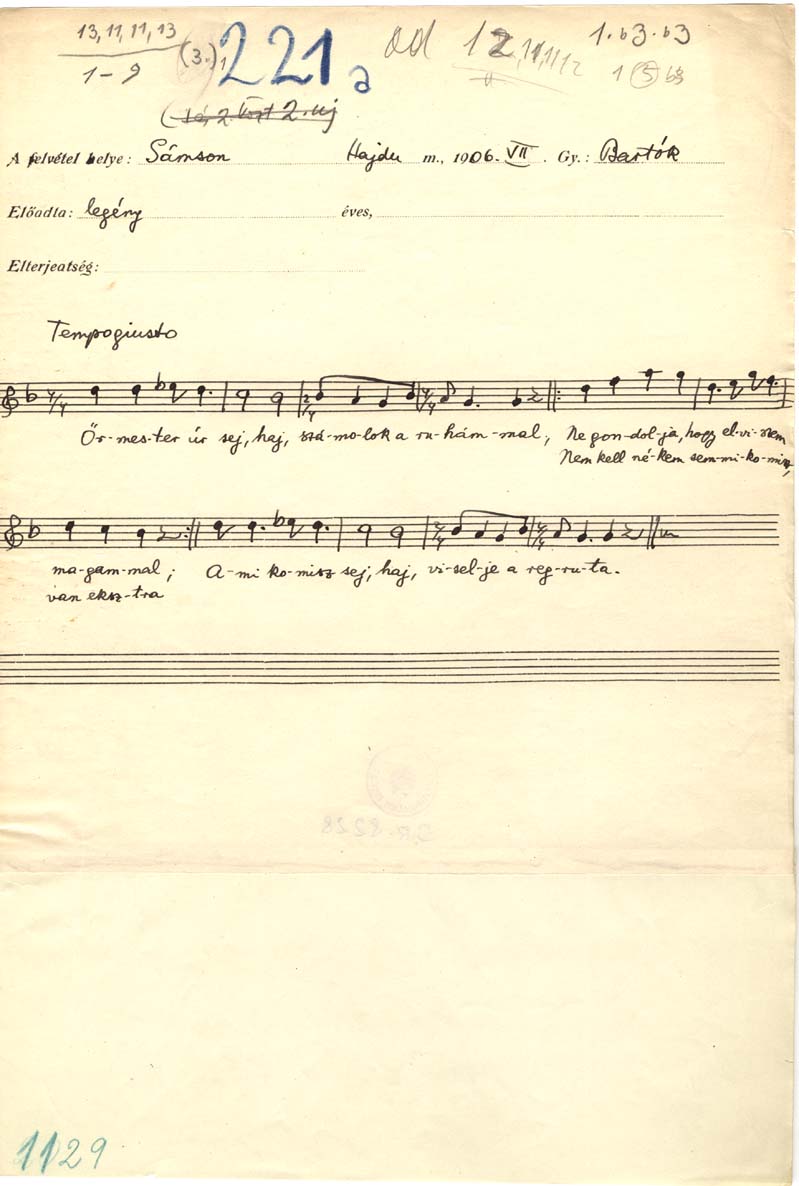 13, 11, 11, 13 (3.) 221 a od 12, 11, 11, 12 1.b3.b3
1-9 1 (5) b3
A felvétel helye: Sámson Hajdu m., 1906. VII. Gy.: Bartók
Előadta: legény éves,
Elterjeatség:
Tempogiusto
Őr-mes-ter úr sej, haj, szá-mo-lok a ru-hám-mal, Ne gon-dol-ja, hogy el-vi-szem
Nem kell né-kem sem-mi-ko-misz,
ma-gam-mal; A-mi ko-misz sej, haj, vi-sel-je a reg-ru-ta.
van eksz-tra
1129